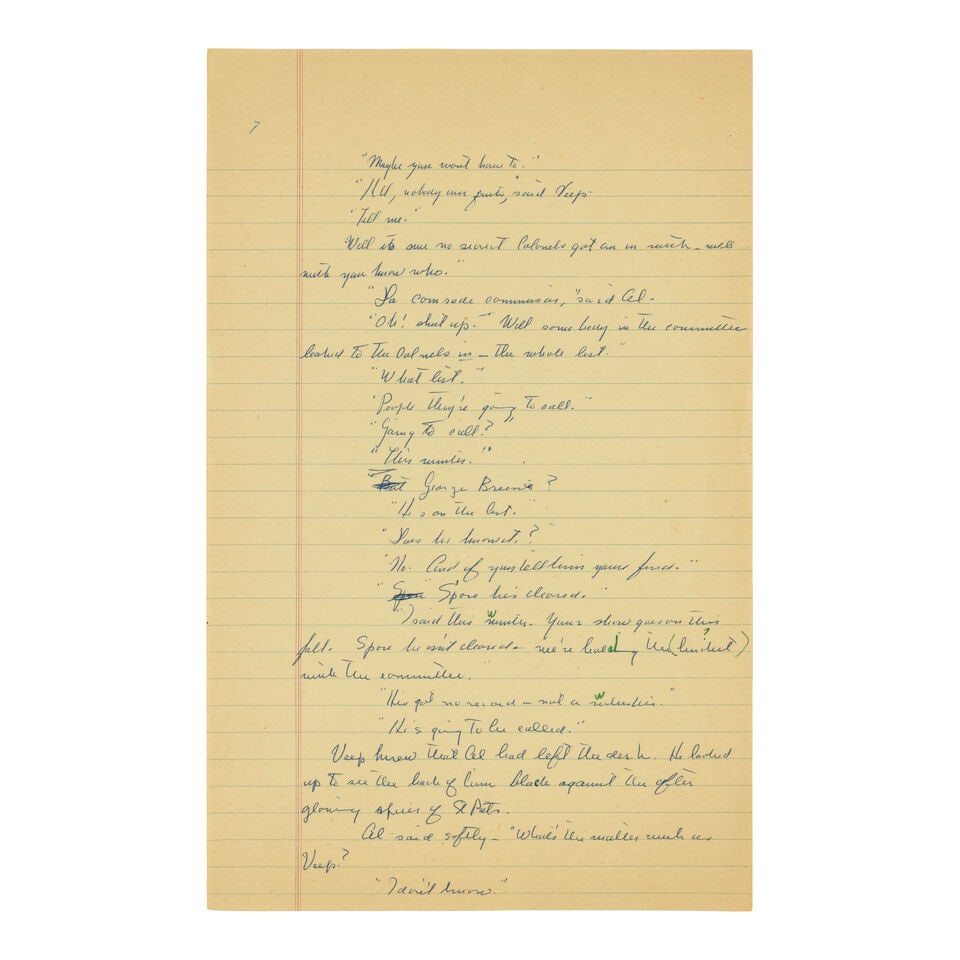 7
"Maybe you won't have to."
"Hell, nobody ever quits," said Veep
"Tell me."
Well it's no secret Colonels got an in with - well
with you know who."
"Da comrade commissar," said Al.
"Oh! shut up." Well somebody in the committee
leaked to the Colonels in - the whole list."
"What list."
"People they're going to call."
"Going to call?"
"This winter."
"But George Breen?
"He's on the list."
"Does he know it?
"No. And if you tell him you're fired."
"Spose he's cleared."
"I said this winter. Your show goes on this
fall. Spose he isn't cleared - we're holding the (bucket?)
with the committee.
"He's got no record - not a whisker."
"He's going to be called."
Veep knew that Al had left the desk. He looked
up to see the back of him black against the after
glowing spires of St Pats.
Al said softly - "What's the matter with us
Veep?
"I don't know."